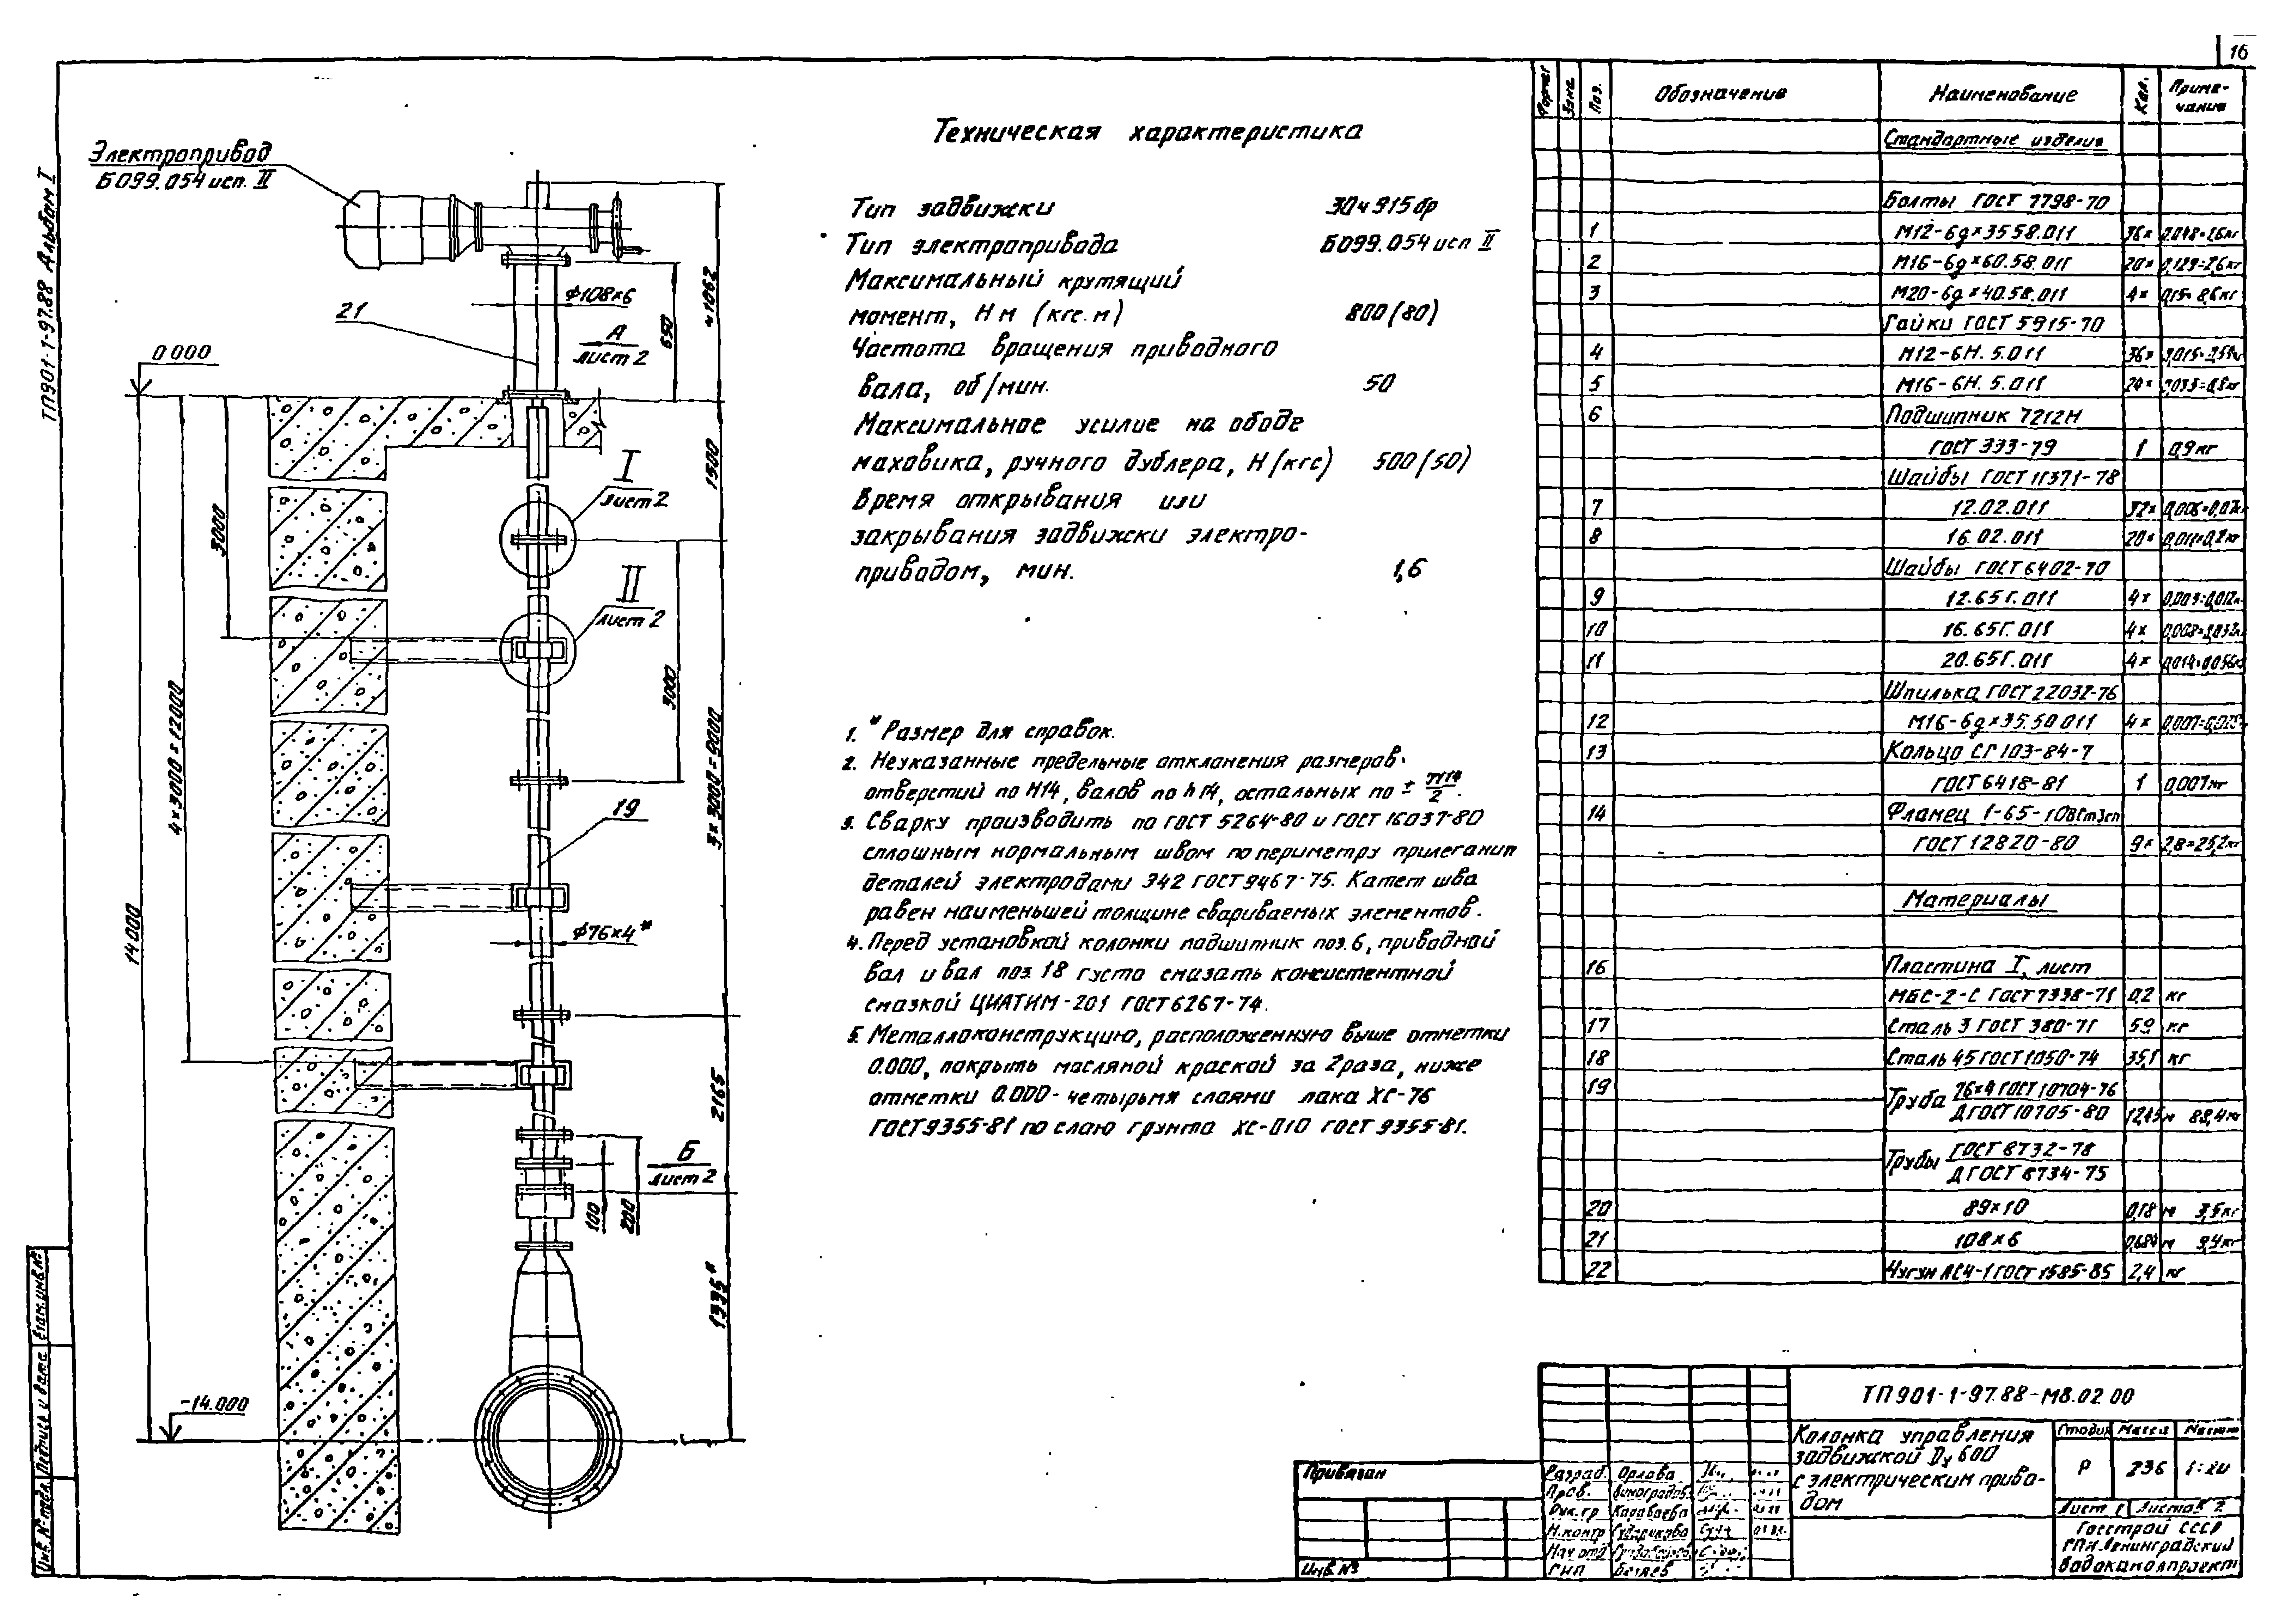 16
ТП901-1-97.88 Альбом I
Электропривод
Б099.054 исп. II
21
Ф108×6
А
лист 2
650
≈1062
0 000
I
лист 2
1500
3000
II
лист 2
3000
4×3000=1200
3×3000=9000
19
Ф76×4*
14000
2165
Б
лист 2
100
200
1335*
-14.000
Техническая характеристика
Тип задвижки 30ч915бр
Тип электропривода Б099.054 исп II
Максимальный крутящий
момент, Н м (кгс. м) 800(80)
Частота вращения приводного
вала, об/мин. 50
Максимальное усилие на ободе
маховика, ручного дублера, Н(кгс) 500(50)
Время открывания или
закрывания задвижки электро-
приводом, мин. 1,6
1. * Размер для справок.
2. Неуказанные предельные отклонения размеров
отверстий по Н14, валов по h14, остальных по ± IT14/2.
3. Сварку производить по ГОСТ 5264-80 и ГОСТ 16037-80
сплошным нормальным швом по периметру прилегания
деталей электродами Э42 ГОСТ 9467-75. Катет шва
равен наименьшей толщине свариваемых элементов.
4. Перед установкой колонки подшипник поз. 6, приводной
вал и вал поз. 18 густо смазать консистентной
смазкой ЦИАТИМ-201 ГОСТ 6267-74.
5. Металлоконструкцию, расположенную выше отметки
0.000, покрыть масляной краской за 2 раза, ниже
отметки 0.000- четырьмя слоями лака ХС-76
ГОСТ 9355-81 по слою грунта ХС-010 ГОСТ 9355-81.
Формат Зона Поз. Обозначение Наименование Кол. Приме-
чание
Стандартные изделия
Болты ГОСТ 7798-70
1 М12-6g×35 58.011 36×
2 М16-6g×60.58.011 20× 0,129=2,6кг
3 М20-6g×40.58.011 4×
Гайки ГОСТ 5915-70
4 М12-6Н. 5.011 36×
5 М16-6Н. 5.011 24× 0,033=0,8кг
6 Подшипник 7212Н
ГОСТ 333-79 1 0,9кг
Шайбы ГОСТ 11371-78
7 12.02.011 32×
8 16.02.011 20×
Шайбы ГОСТ 6402-70
9 12.65Г.011 4× 0,003=0,012к
10 16.65Г.011 4× 0,008=0,032к
11 20.65Г.011 4× 0,014=0,056к
Шпилька ГОСТ 22032-76
12 М16-6g×35.50 011 4×
13 Кольцо СГ 103-84-7
ГОСТ 6418-81 1 0,007кг
14 Фланец 1-65-10ВСт3сп
ГОСТ 12820-80 9× 2,8=25,2кг
Материалы
16 Пластина I, лист
МБС-2-С ГОСТ 7338-71 0,2 кг
17 Сталь 3 ГОСТ 380-71 59 кг
18 Сталь 45 ГОСТ 1050-74 35,1 кг
19 Труба 76×4 ГОСТ 10704-76
Д ГОСТ 10705-80 12,45м 88,4кг
Трубы ГОСТ 8732-78
Д ГОСТ 8734-75
20 89×10 0,18 м 3,5кг
21 108×6 0,684м 9,4кг
22 Чугун АСЧ-1 ГОСТ 1585-85 2,4 кг
ТП 901-1-97.88-М8.02 00
Колонка управления
задвижкой Dу 600
с электрическим приво-
дом
Стадия Масса Масшт
Р 236 1:20
Лист 1 Листов 2
Госстрой СССР
ГПИ Ленинградский
Водоканалпроект
Разраб. Орлова
Пров. Виноградов
Рук. гр Караваева
Н.контр Сударикова
Нач отд
ГИП Беляев
Привязан
Инв. №
Инв. № подл. Подпись и дата Взам. инв. №